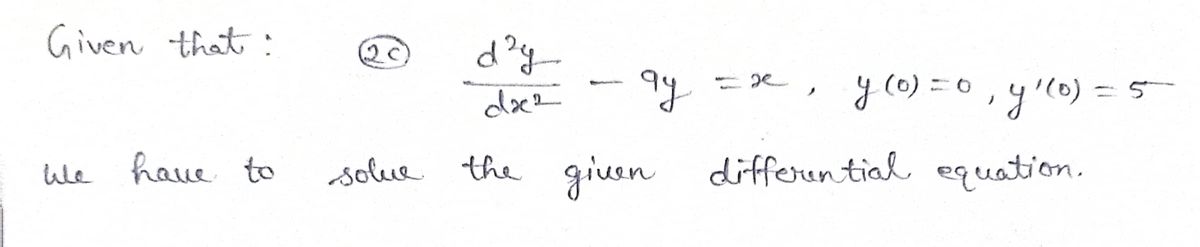 Given that : (2c) d²y/dx² - 9y = x , y(0) = 0 , y'(0) = 5
We have to solve the given differential equation.